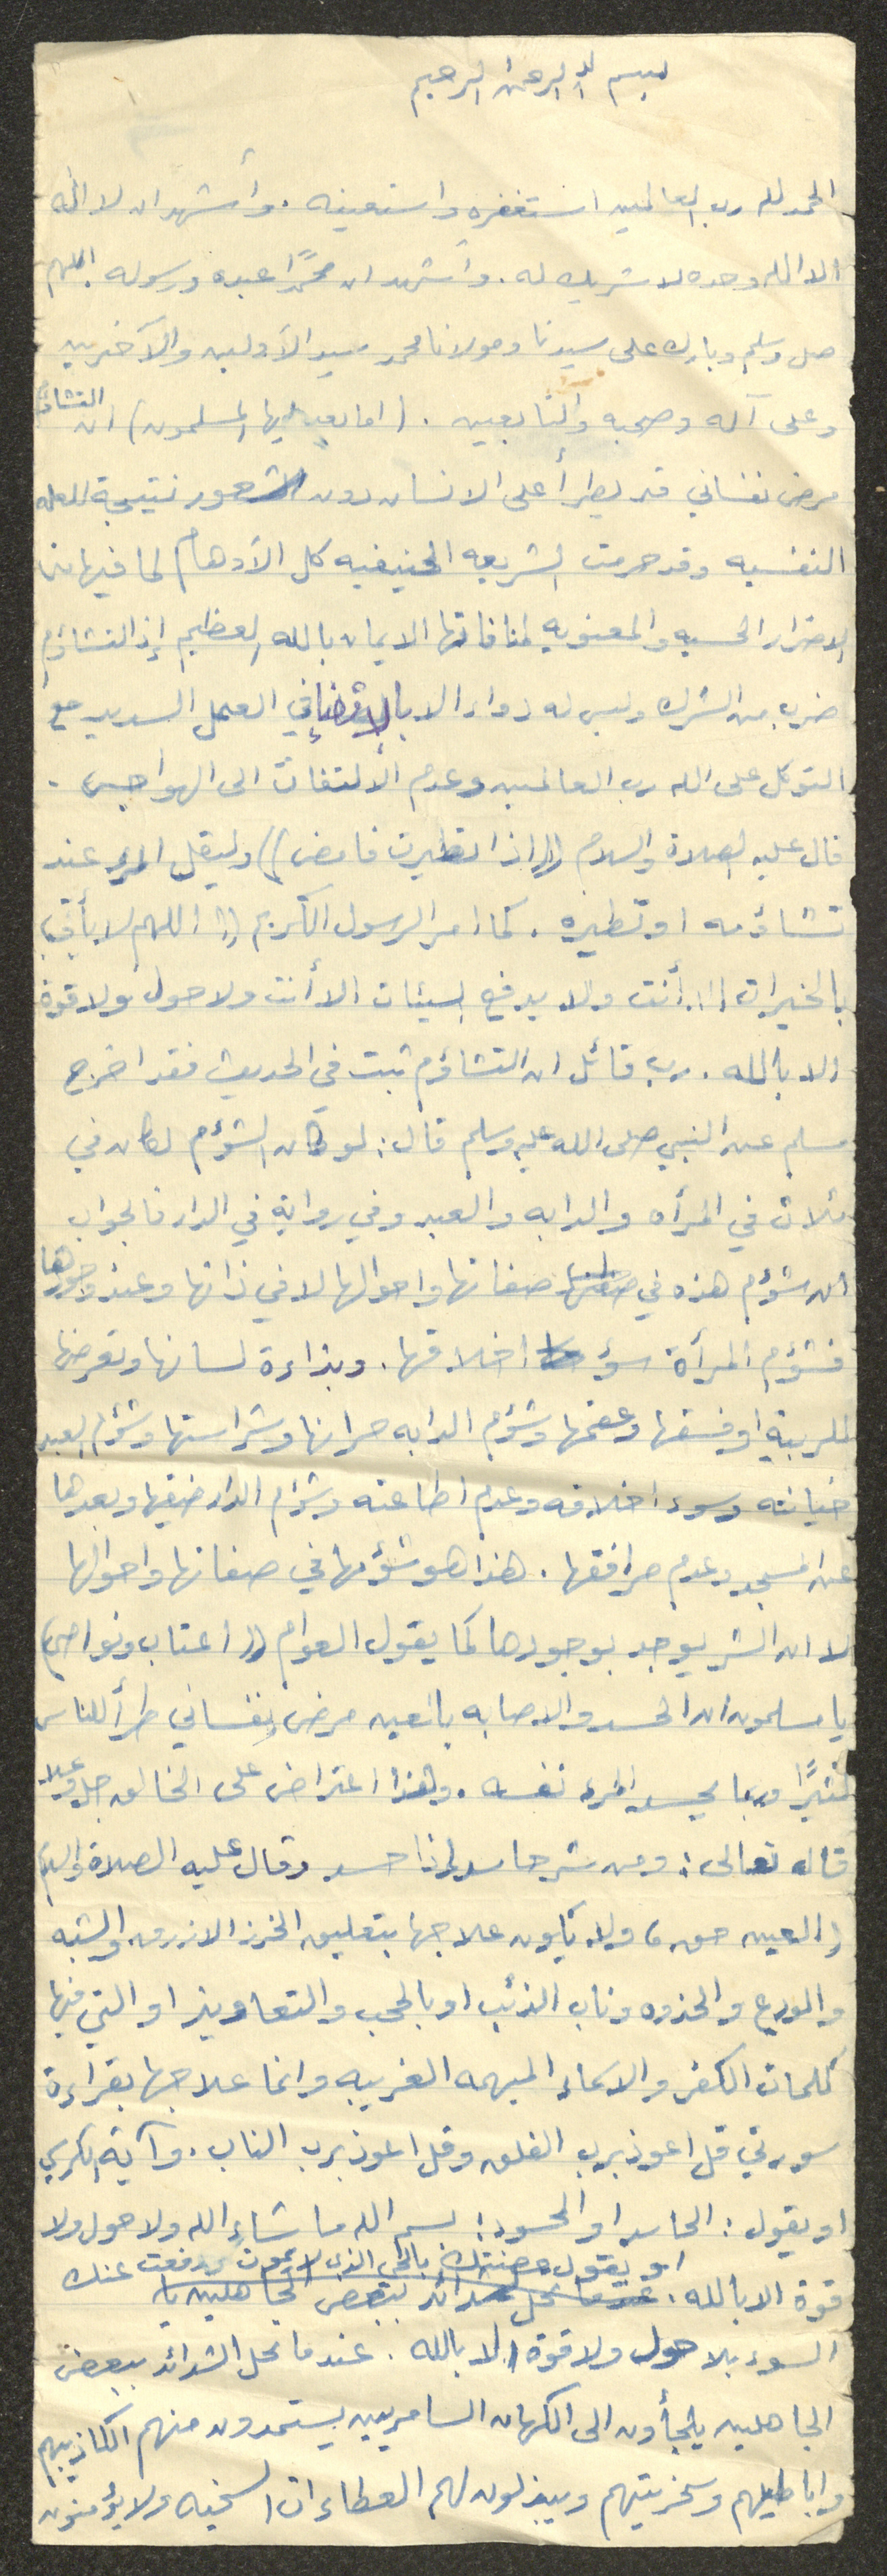 بسم الله الرحمن الرحيم
الحمد لله رب العالمين استغفره واستعينه . وأشهد ان لا اله
الا الله وحده لا شريك له . وأشهد ان محمدًا عبده ورسوله اللهم
صل وسلم وبارك على سيدنا ومولانا محمد سيد الأولين والآخرين
وعلى آله وصحبه والتابعين . (اما بعد ايها المسلمون) ان التشاؤم
مرض نفساني قد يطرأ على الانسان دون الشعور نتيجة للعله
النفسيه وقد حرمت الشريعه الحنيفيه كل الأوهام لما فيها من
الاضرار الحسيه والمعنويه لمنافاتها الايمان بالله العظيم إذ التشاؤم
ضرب من الشرك وليس له دواء الا بالإقضاء في العمل السديد مع
التوكل على الله رب العالمين وعدم الألتفات الى الهواجس .
قال عليه الصلاة والسلام ((اذا تطيرت فامض)) وليقل المرء عند
تشاؤمه او تطيره . كما امر الرسول الكريم (( اللهم لا يأتي
بالخيرات الا أنت ولا يدفع السيئات الا أنت ولا حول ولا قوة
الا بالله . رب قائل ان التشاؤم ثبت في الحديث فقد اخرج
مسلم عن النبي صلى الله عليه وسلم قال : لو كان الشؤم لكان في
ثلاث في المرأه والدابه والعبد وفي رواية في الدار فالجواب
ان شؤم هذه في صفاتها واحوالها لا في ذاتها وعند وجودها
فشؤم المرأة سؤ اخلاقها . وبذاءة لسانها وتعرضها
للريبة او فسقها وعقمها وشؤم الدابه حرانها وشراستها وشؤم العبد
خيانته وسوء اخلاقه وعدم اطاعته وشؤم الدار ضيقها وبعدها
عن المسجد وعدم مرافقها . هذا هو شؤمها في صفاتها واحوالها
لا ان الشر يوجد بوجودها كما يقول العوام (( اعتاب ونواصي)
يا مسلمون ان الحسد والاصابه بالعين مرض نفساني طرأ للناس
كثيرًا وربما يحسد المرء نفسه . وهذا اعتراض على الخالق جل وعلا
قال تعالى : ومن شر حاسد اذا حسد وقال عليه الصلاة والسلام
(العين حق) ولا يكون علاجها بتعليق الخرز الازرق والشبه
والودع والحذوه وناب الذئب او بالحجب والتعاويذ او التي فيها
كلمات الكفر والاسماء المبهمه الغريبه وانما علاجها بقراءة
سورتي قل اعوذ برب الفلق وقل اعوذ برب الناس . وآية الكرسي
او يقول : الحاسد او المحسود : بسم الله ما شاء الله ولا حول ولا
او يقول حصنتك بالحي الذي لا يموت ودفعت عنك
قوة الا بالله .
السوء بلا حول ولا قوة الا بالله . عندما تحل الشدائد ببعض
الجاهلين يلجأون الى الكهان السامريين يستمدون منهم اكاذيبهم
واباطيلهم وسخريتهم ويبذلون لهم العطاءات السخيه ولا يؤمنون